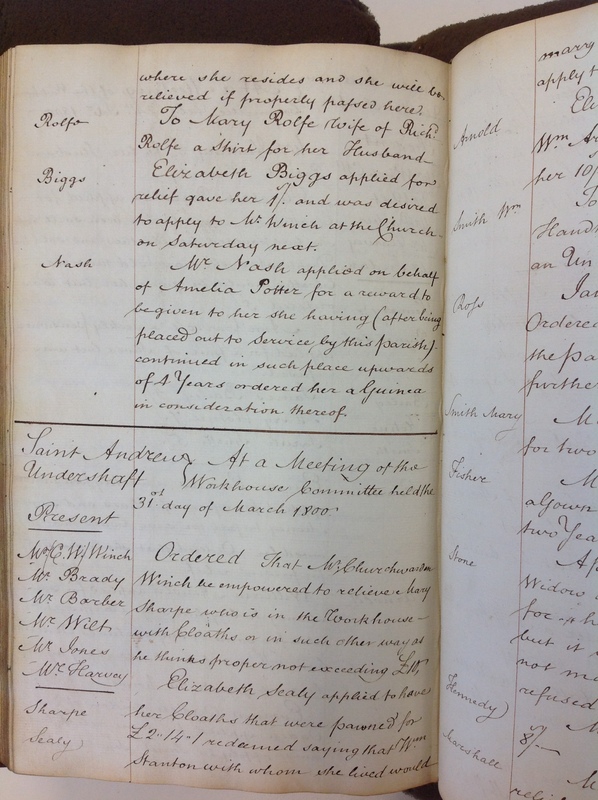 where she resides and she will be
relieved if properly passed here.
Rolfe
To Mary Rolfe Wife of Richd
Rolfe a Shirt for her Husband
Biggs
Elizabeth Biggs applied for
relief gave her 1/. and was desired
to apply to Mr Winch at the Church
on Saturday next.
Nash
Mr Nash applied on behalf
of Amelia Potter for a reward to
be given to her she having (after being
placed out to Service by this parish)
continued in such place upwards
of 4 Years ordered her a Guinea
in consideration thereof
Saint Andrew
Undershaft
At a Meeting of the
Workhouse Committee held the
31st day of March 1800
Present
Mr (C.W) Winch
Mr Brady
Mr Barber
Mr Wilt
Mr Jones
Mr Harvey
Ordered That Mr Churchwarden
Winch be empowered to relieve Mary
Sharpe who is in the Workhouse
with Cloaths or in such other way as
he thinks proper not exceeding
Sharpe
Sealy
Elizabeth Sealy applied to have
her Cloaths that were pawned for
£2"14"1 redeemed saying that Wm
Stanton with whom she lived would
marry
apply t
Eli
Arnold
Wm Ar
her 10/
To
Smith Wm
Hand
an Un
Ross
Jan
Ordered
the pa
furthe
Smith Mary
M
for two
Fisher
M
a Gown
two Yea
Stone
Ap
Widow
for
but it
not m
refused
Kennedy
M
8/-
Marshall
M
reli